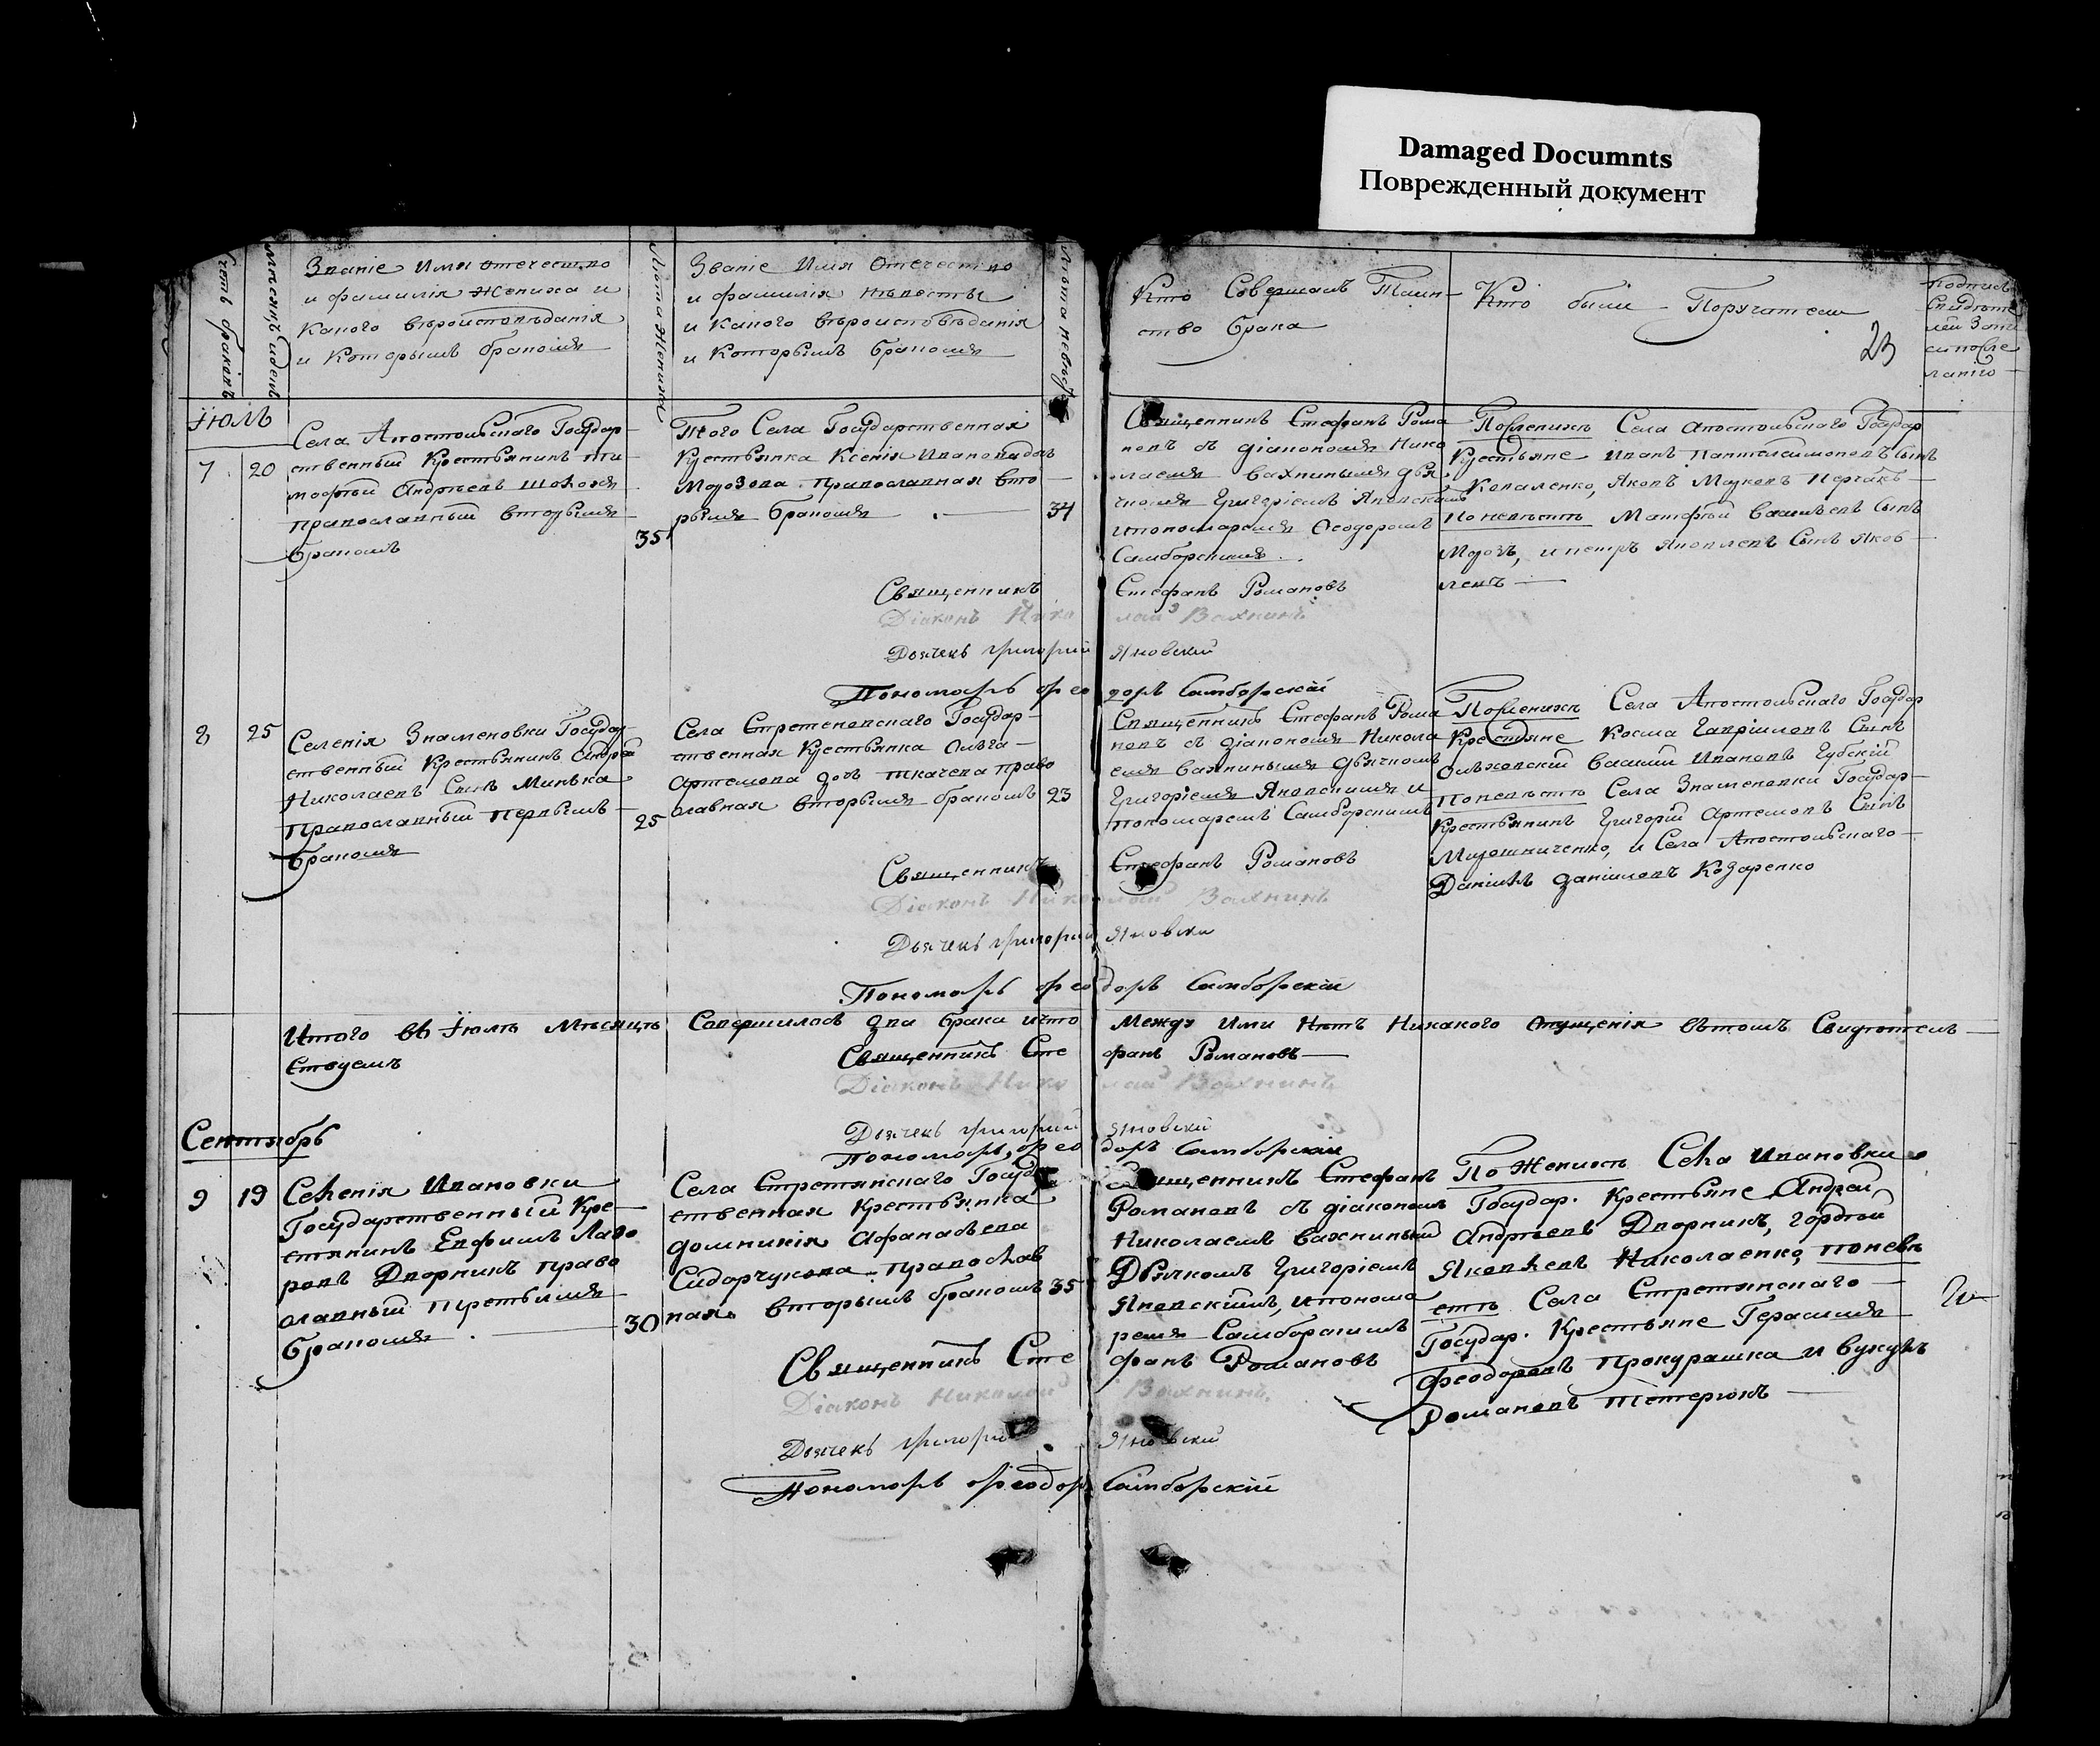 Damaged Documnts
Поврежденный документ
счетъ браковъ
мѣсяцъ и день
Званіе Имя отечество
и фамилія Жениха и
какого вѣроисповѣданія
и которымъ бракомъ
Лѣта Жениха
Званіе Имя Отечество
и фамилія невѣсты
и какого вѣроисповѣданія
и которымъ бракомъ
Лѣта невѣс
Кто Совершалъ Таин-
ство брака
Кто были Поручатели
23
подпись
Свидѣте
лей Запи
си по же
ланію
Іюль
7
20
Села Апостольскаго Государ
ственный Крестьянинъ Ти
мофѣй Андреевъ
православный вторымъ
бракомъ
35
Того Села Государственная
Крестьянка Ксенія Иванова дочь
Морозова православная вто
рымъ бракомъ
34
Священникъ Стефанъ Рома
новъ съ діакономъ Нико
лаемъ Вахнинымъ дья
чкомъ Григоріемъ Яновскимъ
и пономаремъ Ѳеодоромъ
Самборскимъ.
По женихѣ Села Апостольскаго Государ
Крестьяне Иванъ Пантелеимоновъ сынъ
Коваленко, Яковъ Марковъ
По невѣстѣ Матфѣй Васильевъ Сынъ
Морозъ, и петръ Яковлевъ Сынъ Яков
ленъ
Священникъ Стефанъ Романовъ
Діаконъ Николай Вахнинъ
Дьячекъ Григорій Яновскій
Пономарь Феодоръ Самборскій
8
25
Селенія Знаменовки Государ
ственный Крестьянинъ Андрей
Николаевъ Сынъ Минька
Православный первымъ
бракомъ
25
Села Стретеновскаго Государ-
ственная Крестьянка Ольга
Артемова дочь Ткачева право
славная вторымъ бракомъ
23
Священникъ Стефанъ Рома
новъ съ діакономъ Никола
емъ Вахнинымъ дьячкомъ
Григоріемъ Яновскимъ и
пономаремъ Самборскимъ
По женихѣ Села Апостольскаго Государ
Крестяне Косма Гавриловъ Сынъ
Ольховскій Василій Ивановъ Губскій
По невѣстѣ Села Знаменовки Государ-
Крестьянинъ Григорій Артемовъ Сынъ
Мирошниченко, и Села Апостольскаго
Даніилъ Даніиловъ Козаренко
Священникъ Стефанъ Романовъ
Діаконъ Николай Вахнинъ
Дьячекъ Григорій Яновски
Пономарь Феодоръ Самборскій
Итого въ Іюлѣ Мѣсяцѣ Совершилось два брака и что Между Ими Нѣтъ Никакого опущенія вѣтомъ Свидѣтель
Ствуемъ
Священникъ Стефанъ Романовъ
Діаконъ Николай Вахнинъ
Дьячекъ Григорій Яновскій
Пономарь Феодоръ Самборскій
Сентябрь
9
19
Селенія Ивановки
Государственный Кре-
стянинъ Евфимъ Лаво
ровъ Дворникъ право
славный Третьимъ
бракомъ
30
Села Стретянскаго Государ
ственная Крестьянка
Домникія Афанасьева
Сидорчукова православ
ная вторымъ бракомъ
35
Священникъ Стефанъ
Романовъ съ діакономъ
Николаемъ Вахнинымъ
Дьячкомъ Григоріемъ
Яновскимъ, и понома
ремъ Самборскимъ
По Женихѣ Села Ивановки
Государ. Крестьяне Андрей
Андреевъ Дворникъ, Гордѣй
Яковлевъ Николаенко, по невѣ
стѣ Села Стретянскаго
Государ. Крестьяне Герасимъ
Феодоровъ Прокурашка и Вукулъ
Романовъ Тетерюкъ
Священникъ Стефанъ Романовъ
Діаконъ Николай Вахнинъ.
Дьячекъ Григорій Яновскій
Пономарь Феодоръ Самборскій